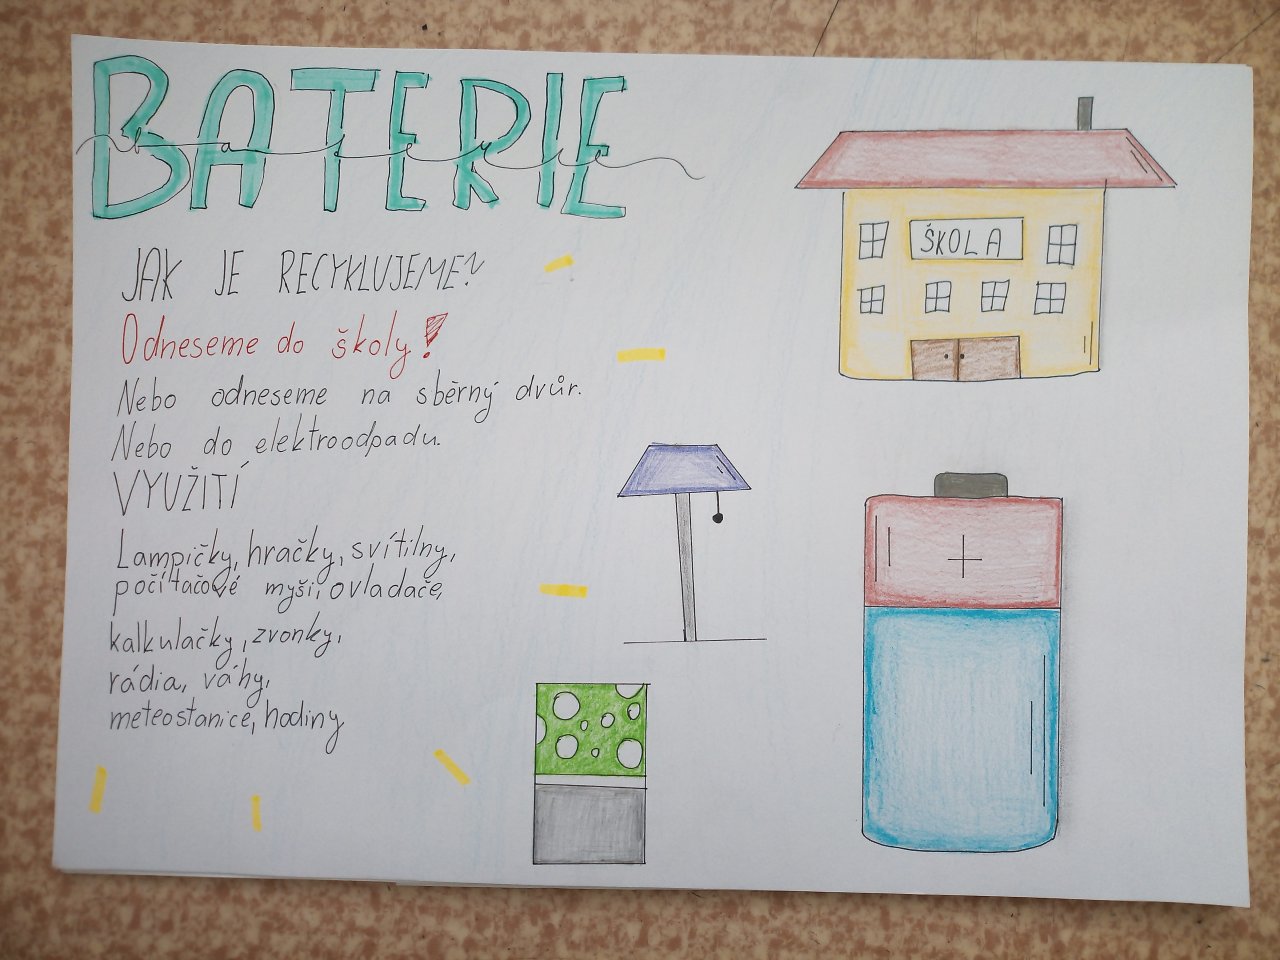 BATERIE
baterie
JAK JE RECYKLUJEME?
Odneseme do školy!
Nebo odneseme na sběrný dvůr.
Nebo do elektroodpadu.
VYUŽITÍ
Lampičky, hračky, svítilny,
počítačové myši, ovladače,
kalkulačky, zvonky,
rádia, váhy,
meteostanice, hodiny
ŠKOLA
+